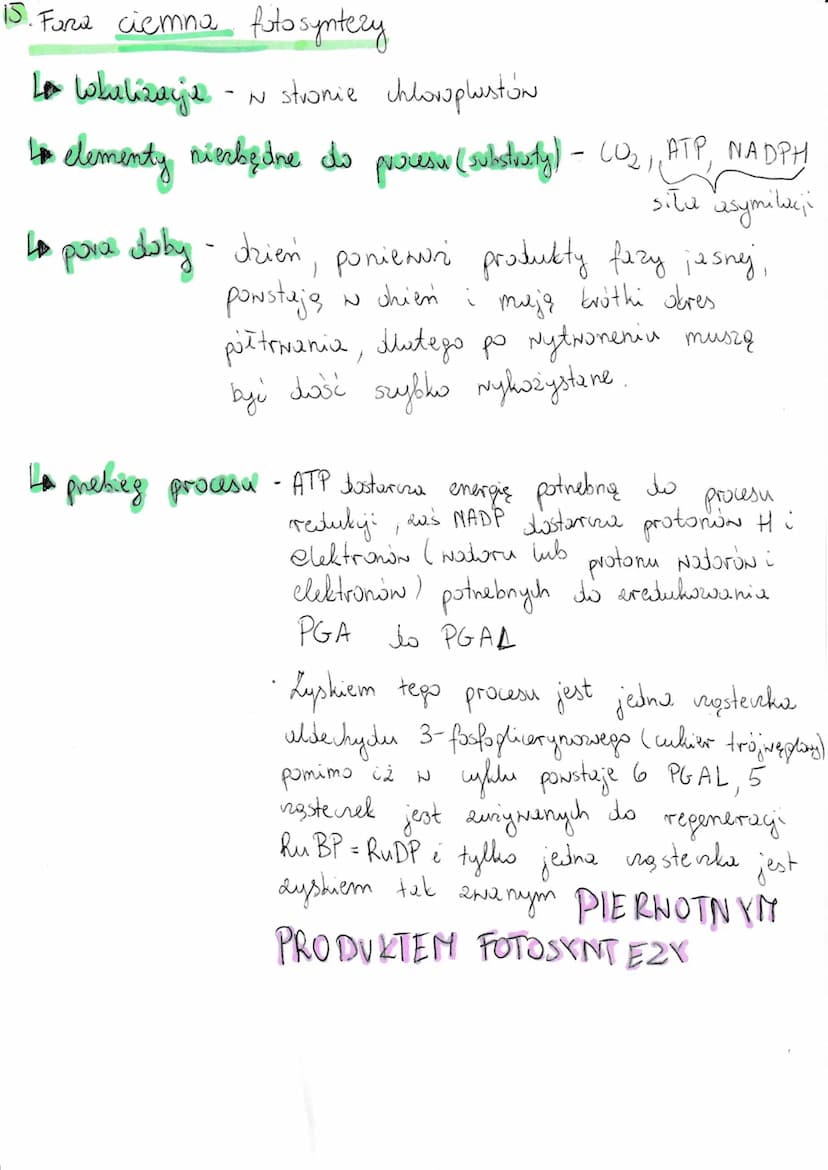 15. Faza ciemna fotosyntezy
↳ lokalizacja - w stromie chloroplastów
↳ elementy niezbędne do procesu (substraty) - CO2, ATP, NADPH
siła asymilacji
↳ pora doby - dzień, ponieważ produkty fazy jasnej,
powstają w dzień i mają krótki okres
półtrwania, dlatego po wytworzeniu muszą
być dość szybko wykożystane.
↳ przebieg procesu - ATP dostarcza energię potrzebną do procesu
redukcji, zaś NADP dostarcza protonów H i
elektronów (wodoru lub protonu wodorów i
elektronów) potrzebnych do zredukowania
PGA do PGAL
· Zyskiem tego procesu jest jedna cząsteczka
aldechydu 3-fosfoglicerynowego (cukier trójwęglowy)
pomimo iż w cyklu powstaje 6 PGAL, 5
cząsteczek jest zużywanych do regeneracji
RuBP = RuDP i tylko jedna cząsteczka jest
zyskiem tak zwanym PIERWOTNYM
PRODUKTEM FOTOSYNTEZY